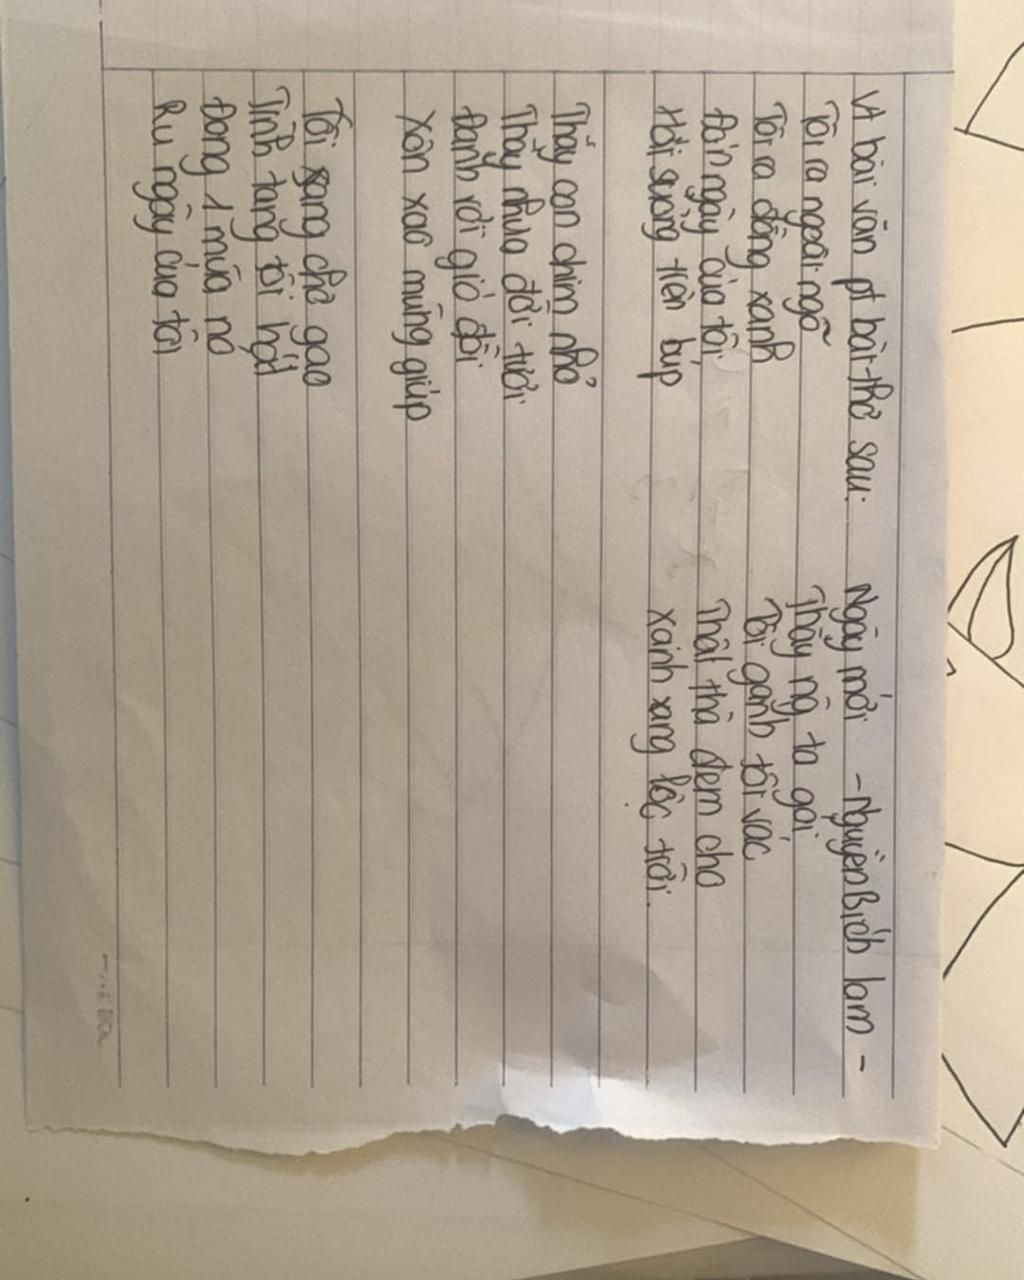 Vt bài văn pt bài thơ sau: Ngày mới - Nguyễn Bích Lam -
Tôi ra ngoài ngõ
Tôi ra đồng xanh
Đón ngày của tôi
Hơi sương liền búp
Thấy con chim nhỏ
Thấy nhựa đời tươi
Đánh rơi giỏ đồi
Xôn xao mừng giúp
Tôi sang chợ gạo
Tính tang tôi hát
Đong 1 mùa no
Ru ngày của tôi
Thấy ng ta gọi
Tôi gánh tôi vác
Thật thà đem cho
xanh xang lộc trời.